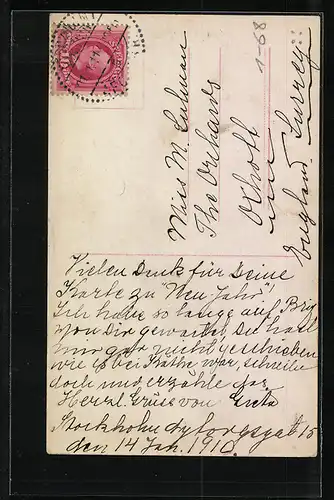 Miss M. Lehman
The Orchards
Okholt
England. Surrey
1-68
Vielen Dank für Deine
Karte zu "Neu Jahr"!
Ich habe so lange auf Brief
von Dir gewartet. Du hast
mir gar nicht geschrieben
wie es bei Käthe war, schreibe
doch und erzähle
Herzl. Grüss von Greta
Stockholm 15
den 14 Jan. 1910.
10